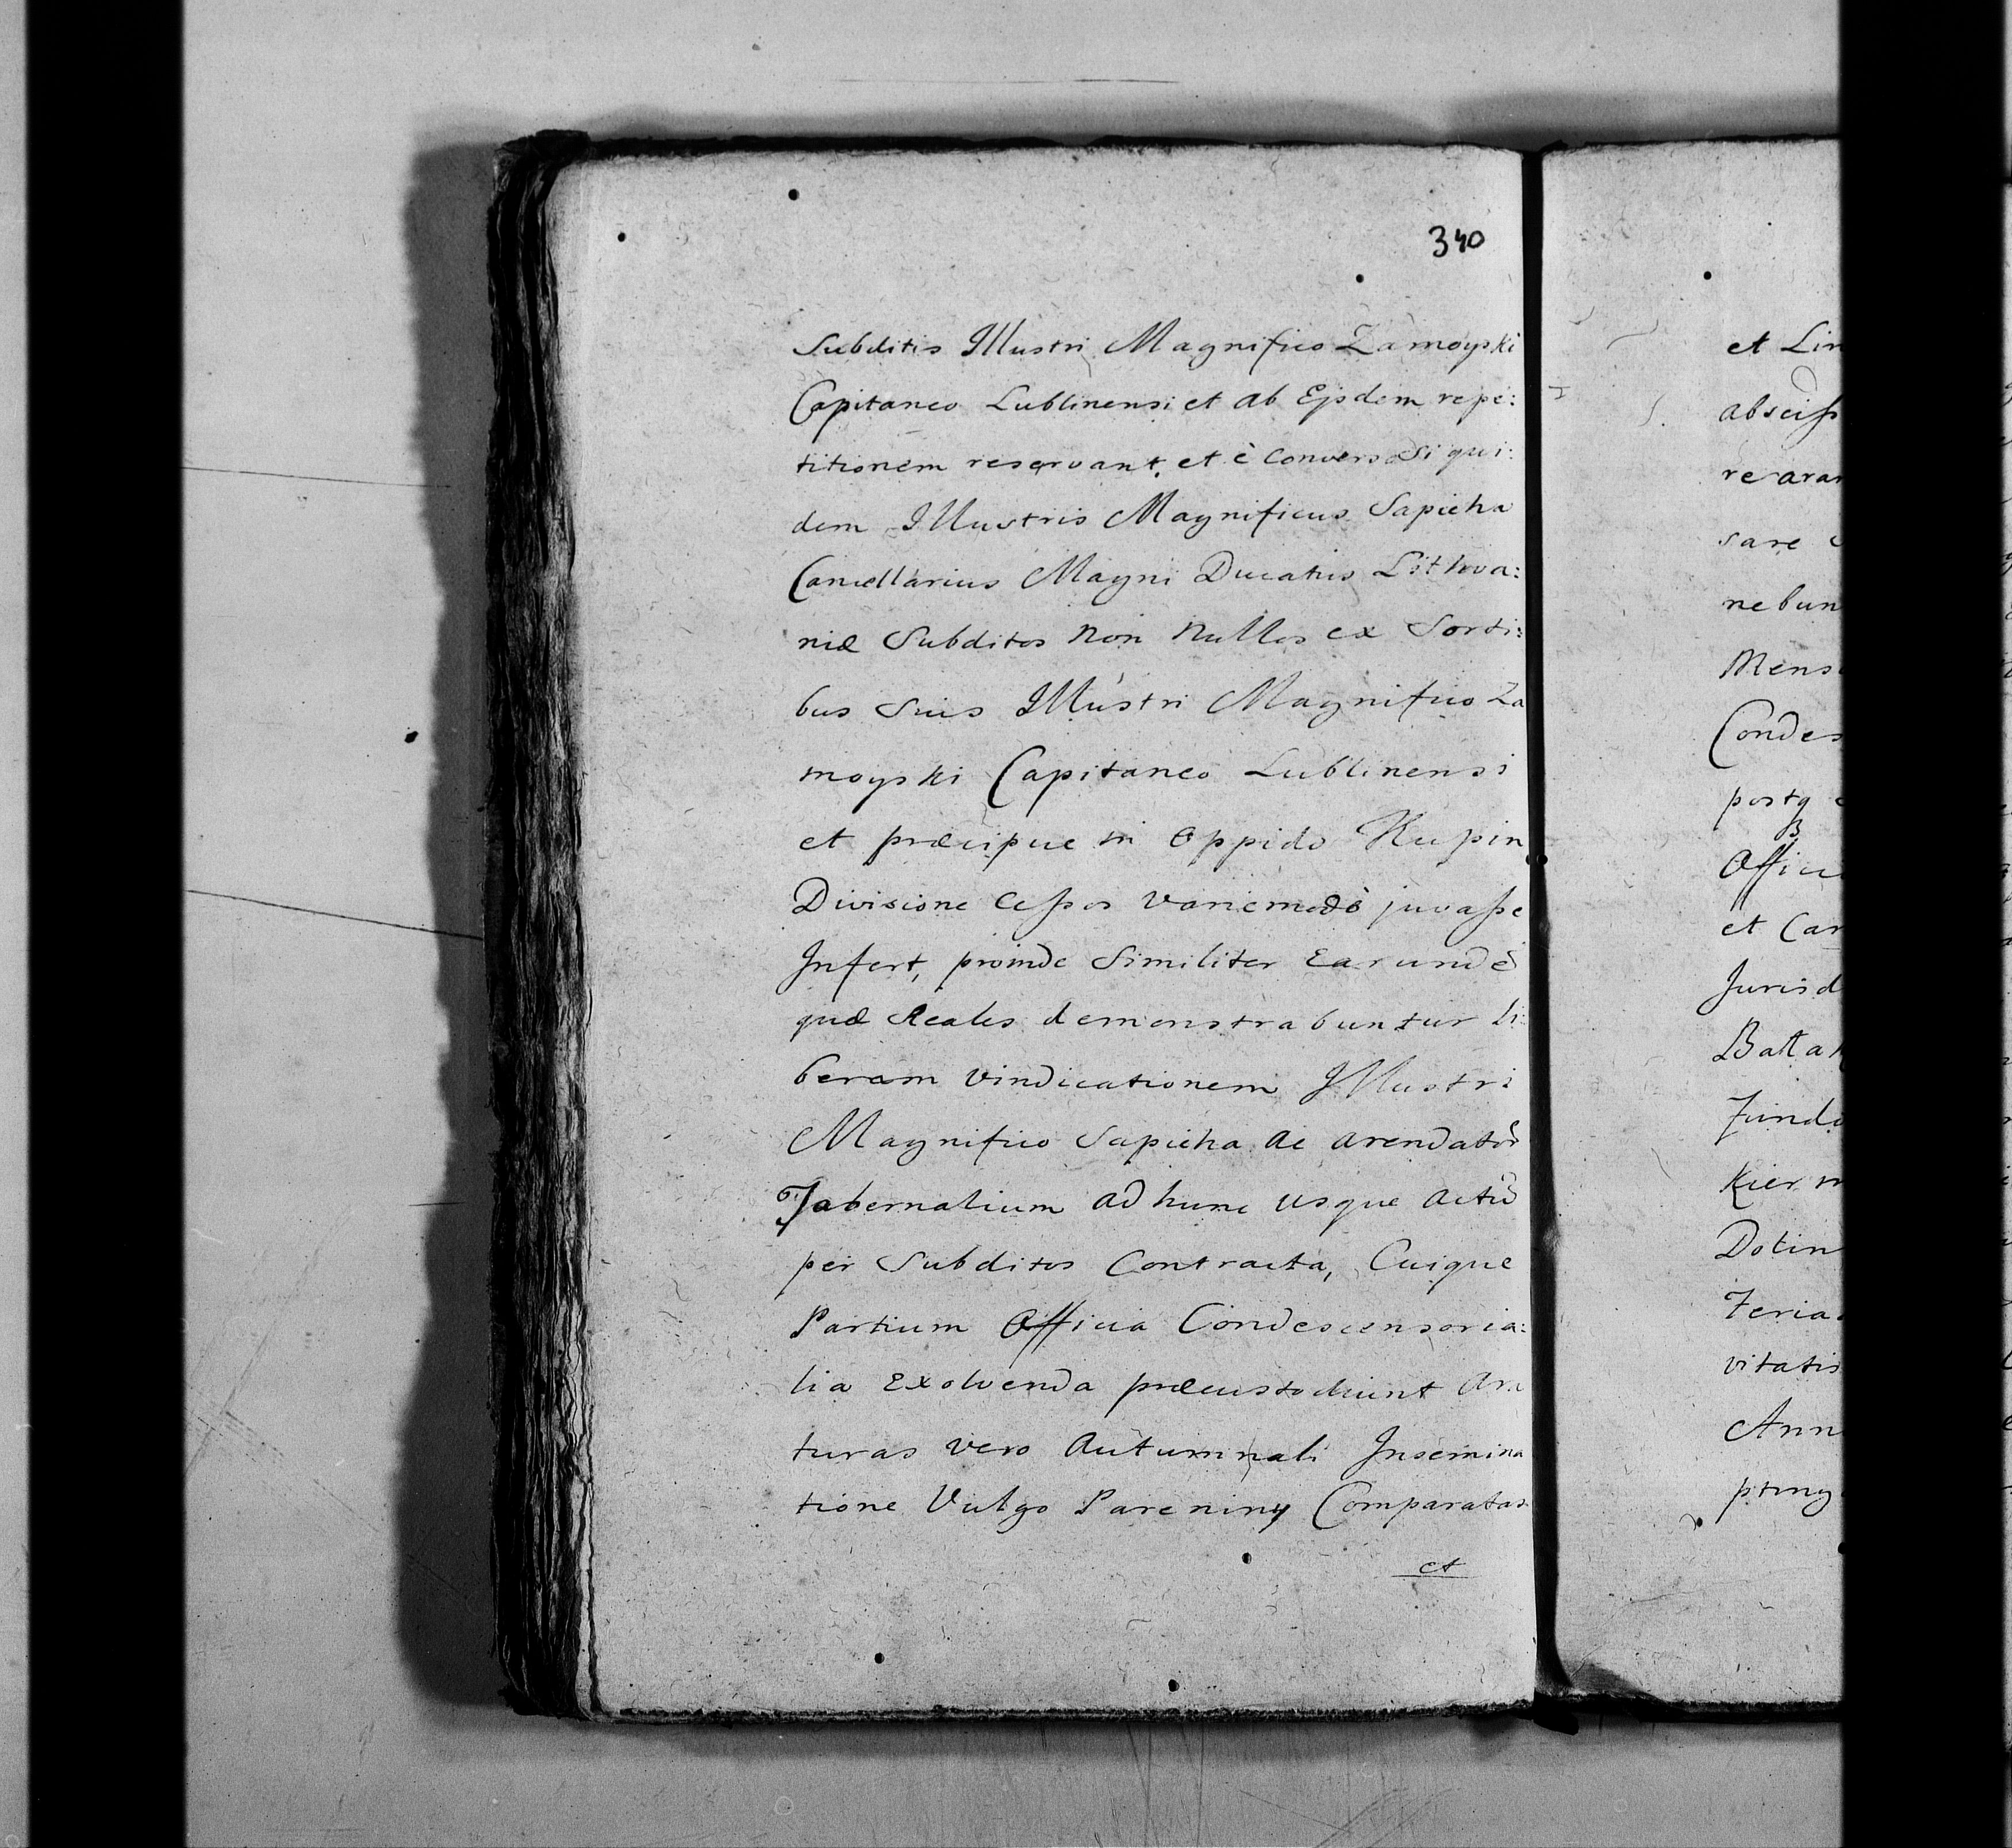 340
Subditis Illustri Magnifico Zamoyski
Capitaneo Lublinensi et ab Ejsdem repe:
titionem reservant, et è Converso Si qui:
dem Illustris Magnificus Sapieha
Cancellarius Magni Ducatus Lithva:
niæ Subditos Non Nullos ex Sorti:
bus Suis Illustri Magnifico Za
moyski Capitaneo Lublinensi
et præcipue in Oppido Kupin
Divisione Cessos Variemodò juvasse
Infert, proinde Similiter Earundē
quæ Reales demonstrabuntur li:
beram vindicationem Illustri
Magnifico Sapieha ac arendator
Tabernalium ad hunc usque actū
per Subditos Contracta, Cuique
Partium Officia Condescensoria:
lia Exolvenda præcustodiunt Ara
turas vero Autumnali Insemina
tione Vulgo Pareniny Comparatas
et
et Lin
absciss
re arar
sare
nebun
Mens
Condes
postq
Offici
et Car
Jurisd
Batta
Fundo
Kier
Dotin
Feria
vitatis
Ann
ptmg